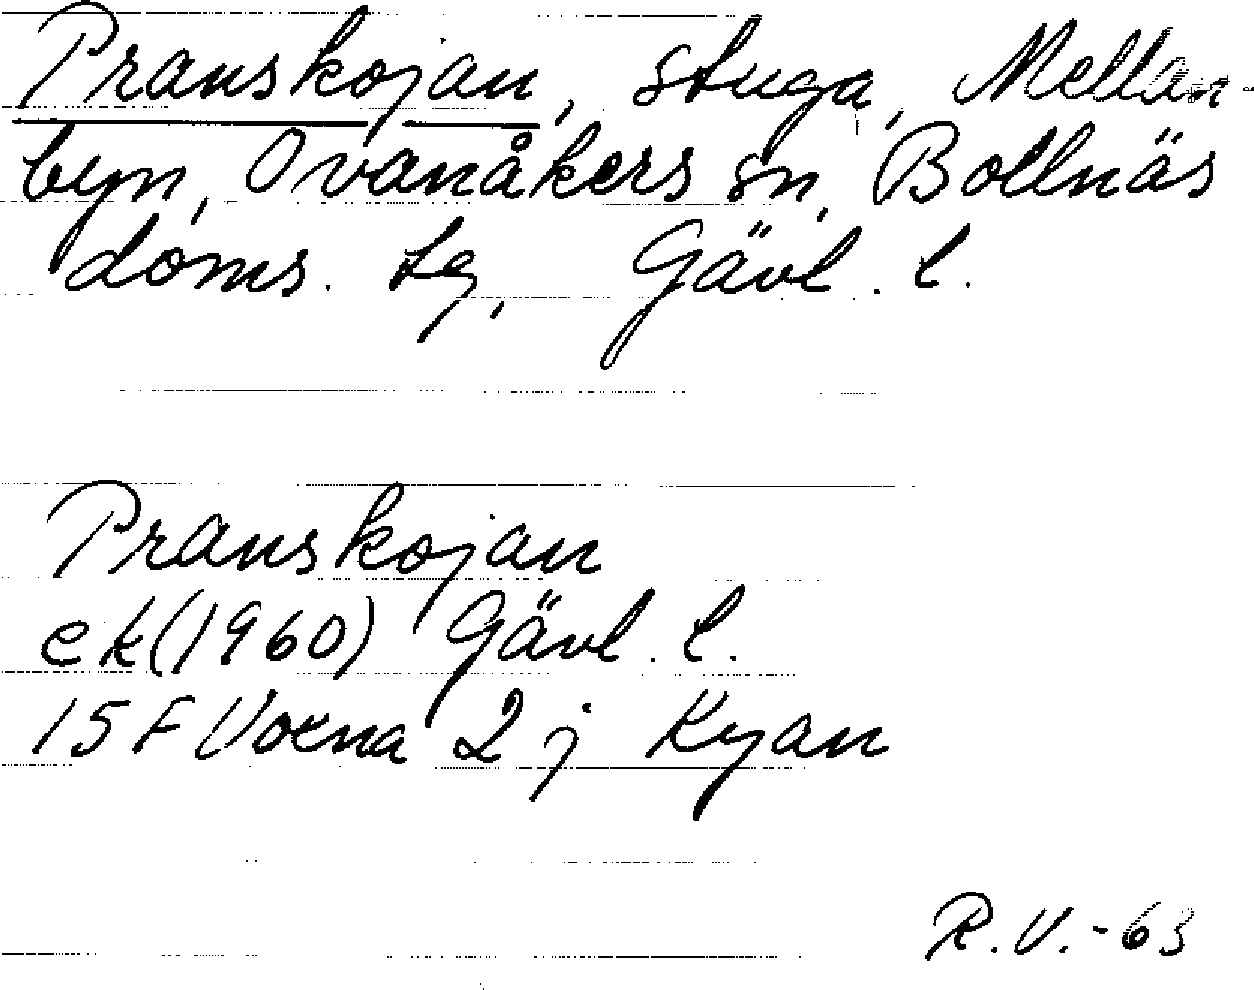 Pranskojan, stuga, Mellan-
byn, Ovanåkers sn, Bollnäs
doms. tg, Gävl. l.
Pranskojan
ek (1960) Gävl. l.
15 F Voxna 2 j Kyan
R.V.-63